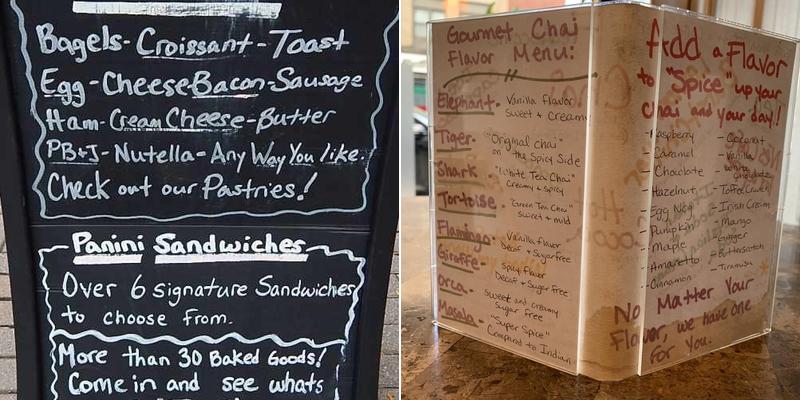 Bagels-Croissant-Toast
Egg-Cheese Bacon-Sausage
Ham-Cream Cheese-Butter
PB+J-Nutella-Any Way You like.
Check out our Pastries!
Panini Sandwiches
Over 6 signature Sandwiches
to choose from.
More than 30 Baked Goods!
Come in and see whats
Gourmet Chai
Flavor Menu:
Elephant- Vanilla flavor
sweet & creamy
Tiger- "Original chai"
on the Spicy Side
Shark "White Tea Chai"
Creamy & spicy
Tortoise- "Green Tea Chai"
sweet & mild
Flamingo- Vanilla flavor
Decaf & Sugarfree
Giraffe- Spicy flavor
Decaf & Sugar free
Orca- sweet and creamy
Sugar free
Masala- "Super Spice"
Compared to Indian
Add a Flavor
to "Spice" up your
chai and your day!
-Raspberry
-Caramel
-Chocolate
-Hazelnut
-Egg Nog
-Pumpkin
-Maple
-Amaretto
-Cinnamon
-Coconut
-Vanilla
-White Chocolate
-Toffee Crunch
-Irish Cream
-Mango
-Ginger
-Butterscotch
-Tiramisu
No Matter Your
Flavor, we have one
For You.